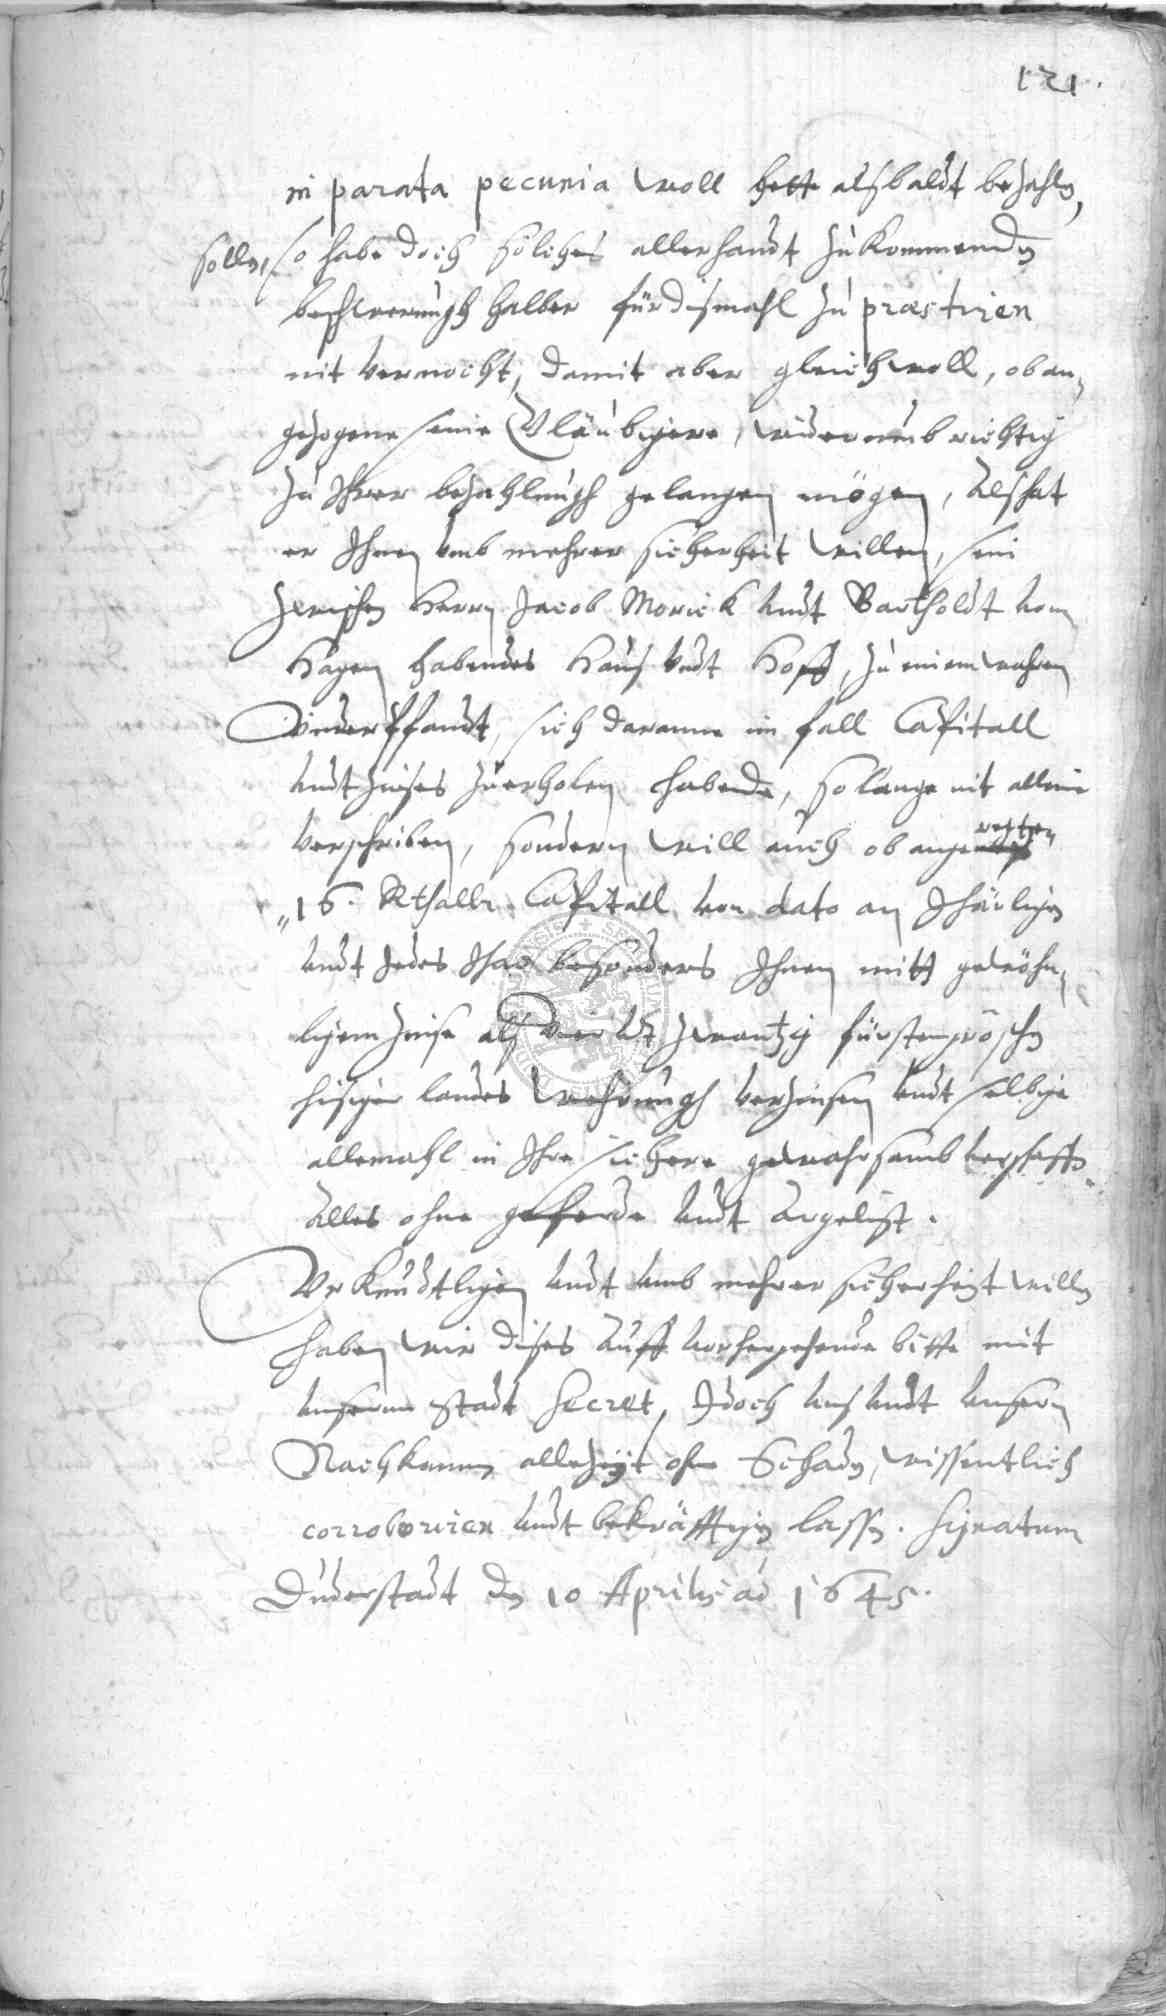 121.
in parata pecunia woll hette alsbaldt bezahlen
sollen, so habe doch solches allerhandt zukommenden
beschwerungh halber für dismahl zu præstiren
nit vermocht, damit aber gleichwoll, oban
gezogene seine Gläubigere, widerumb richtig
zu Ihrer bezahlungh gelangen mögen, alß hat
er Ihnen umb mehrer sicherheit willen, sein
zwischen Herrn Jacob Morick undt Bartholdt vom
Hagen habendes Hauß undt Hoff, zu einem wahren
Underpfandt, sich daranne im fall Capitall
undt zinses zuerholen habende, so lange nit alleine
verschriben, sondern will auch ob angeregten
16. Rthaller Capitall von dato an Jharligen
undt jedes Jhar besonders Ihnen mitt gewöhn
ligem zinse alß vier undt zwantzig fürstengröschen
hisiger landes wehrungh verzinsen undt selbige
allemahl in Ihre sichere gewahrsamb verschaffen
alles ohne geferde undt argelist.
Urkundtligen undt umb mehrer sicherheit willen
haben wir dises auff vorhergehende bitte mit
unserm stadt Secret, Jdoch uns undt unsern
Nachkommen allezeit ohne Schaden, wissentlich
corroboriren undt bekräfftigen lassen. Signatum
Duderstadt den 10 Aprilis ao 1645.